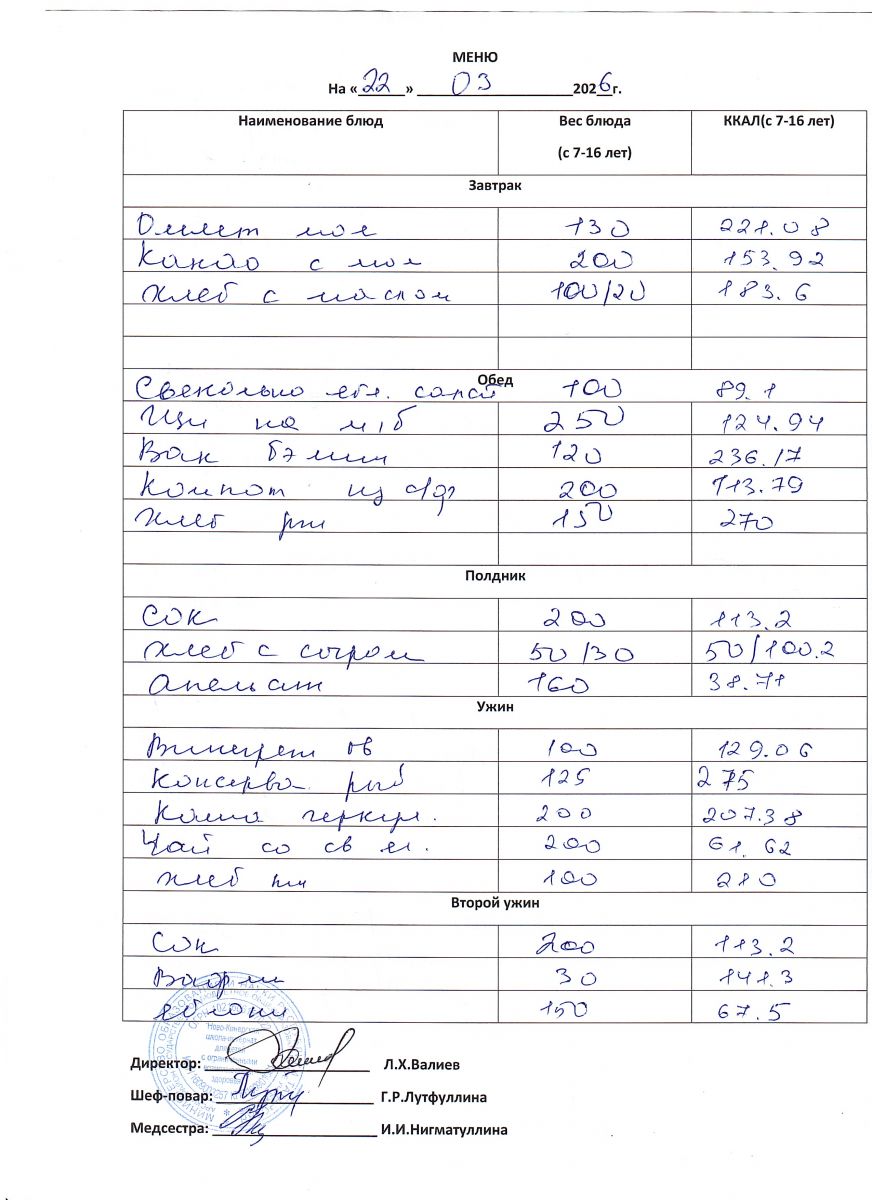 МЕНЮ
На «22» 03 2026г.
Наименование блюд Вес блюда (с 7-16 лет) ККАЛ(с 7-16 лет)
Завтрак
Омлет мол 130 221.08
Какао с мол 200 153.92
Хлеб с маслом 100/20 183.6
Обед
Свекольно ябл. салат 100 89.1
Щи на м/б 250 124.94
Вак бэлиш 120 236.17
Компот из с/фр 200 113.79
Хлеб рж 150 270
Полдник
Сок 200 113.2
Хлеб с сыром 50/30 50/100.2
Апельсин 160 38.71
Ужин
Винегрет ов 100 129.06
Консерва рыб 125 275
Каша геркул. 200 207.38
Чай со св ял. 200 61.62
Хлеб пш 100 210
Второй ужин
Сок 200 113.2
Вафли 30 141.3
яблоки 150 67.5
"Ново-Кинерская
школа-интернат
для детей
с ограниченными
возможностями
здоровья"
Директор: Л.Х.Валиев
Шеф-повар: Г.Р.Лутфуллина
Медсестра: И.И.Нигматуллина